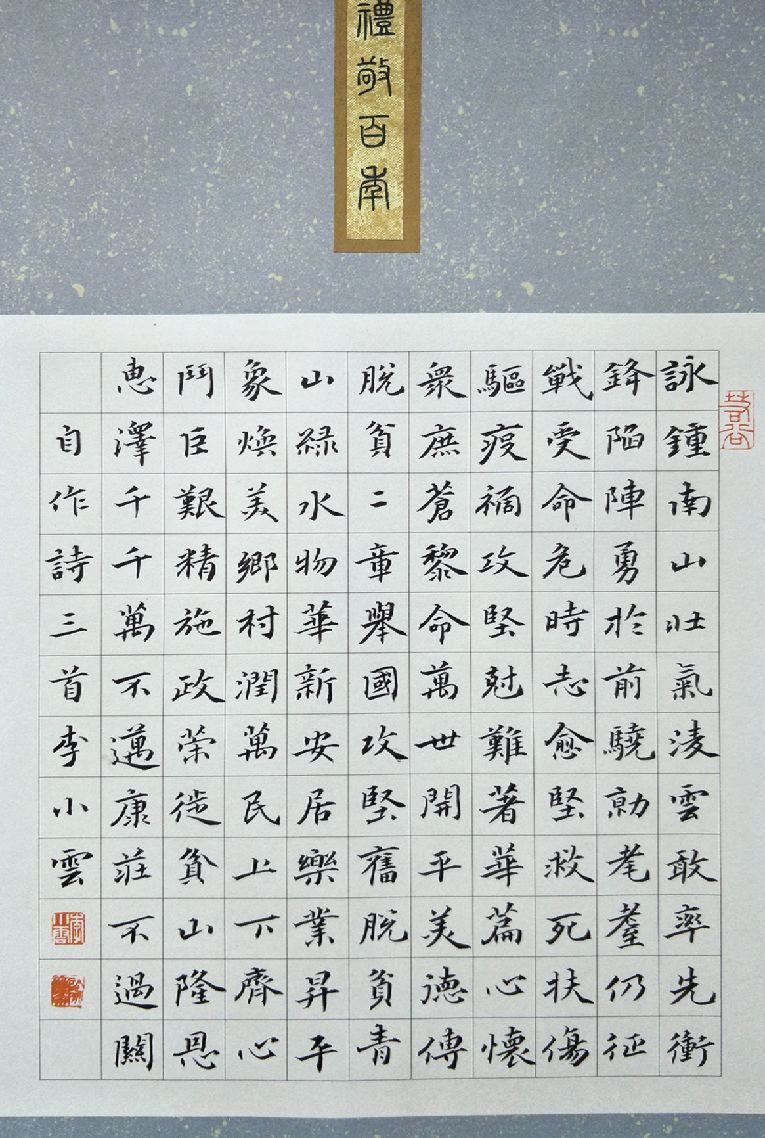 禮敬百年
詠鍾南山壯氣淩雲敢率先衝
鋒陷陣勇於前驍勍耄耋仍征
戰受命危時志愈堅救死扶傷
驅疫禍攻堅尅難著華篇心懷
衆庶蒼黎命萬世開平美德傳
脫貧二章舉國攻堅奮脫貧青
山緑水物華新安居樂業昇平
象煥美鄉村潤萬民上下齊心
鬥巨艱精施政榮徙貧山隆恩
惠澤千千萬不邁康莊不過關
自作詩三首李小雲
李小雲